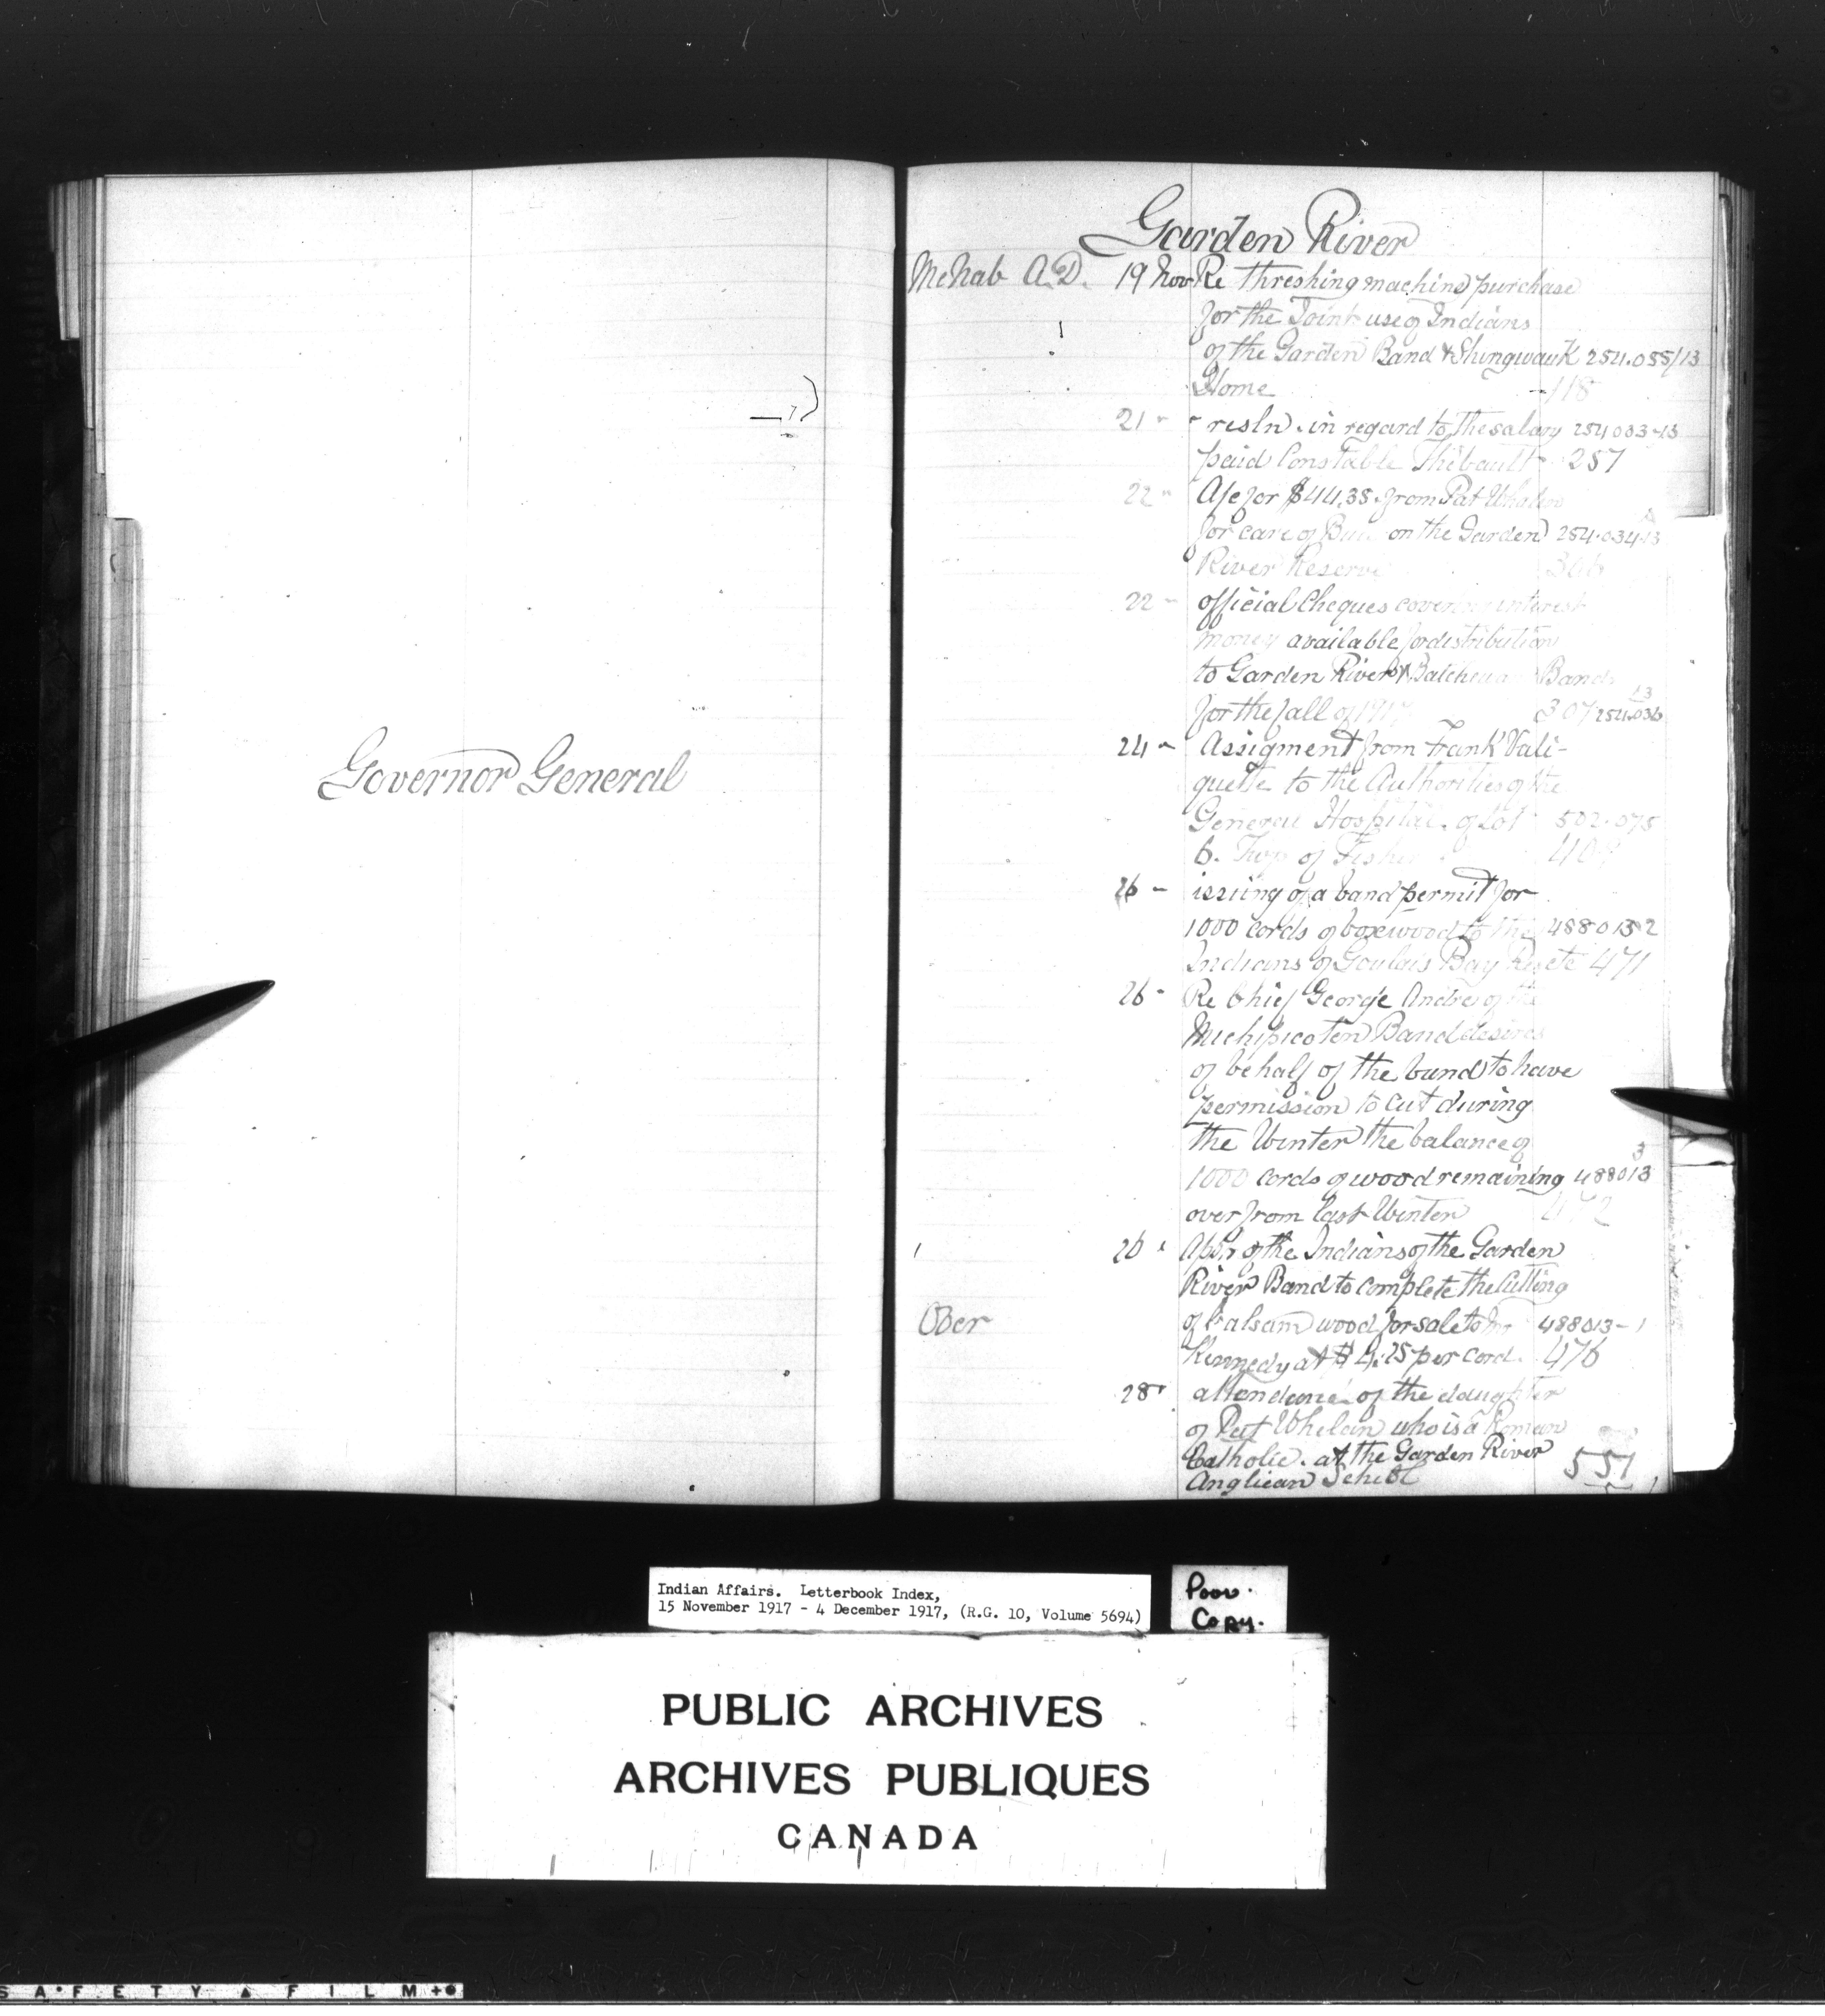 Governor General
Garden River
McNab A.D. 19 Nov Re threshing machine purchase
for the Joint use of Indians
of the Garden Band & Shingwauk 254.055/13
Home 118
21 " " resln. in regard to the salary 254003-13
paid Constable Thibault 257
22 " A/c for $44.35 from Pat Whalen
for care of on the Garden 254.034-13
River Reserve
22 " official Cheques covering interest
money available for distribution
to Garden River & Batchewa Band
for the fall of 1917 307 254.036 13
24 " Assigment from Frank Vali-
quette to the Authorities of the
General Hospital. of Lot 502.075
6. Twp of Fisher
26 " issuing of a band permit for
1000 cords of boxwood to the 488013-2
Indians of Goulais Bay Res etc 471
26 " Re Chief George Andre of the
Michipicoten Band desires
of behalf of the band to have
permission to cut during
the Winter the balance of
1000 cords of wood remaining 488013 3
over from last Winter 472
26 " of the Indians of the Garden
River Band to complete the Cutting
Over of balsam wood for sale to Mr 488013-1
Kennedy at $4.25 per cord. 476
28 " attendance of the daughter
of Pat Whelan who is a Roman
Catholic. at the Garden River
Anglican School 551
Indian Affairs. Letterbook Index,
15 November 1917 - 4 December 1917, (R.G. 10, Volume 5694)
Poor
Copy.
PUBLIC ARCHIVES
ARCHIVES PUBLIQUES
CANADA
SAFETY FILM